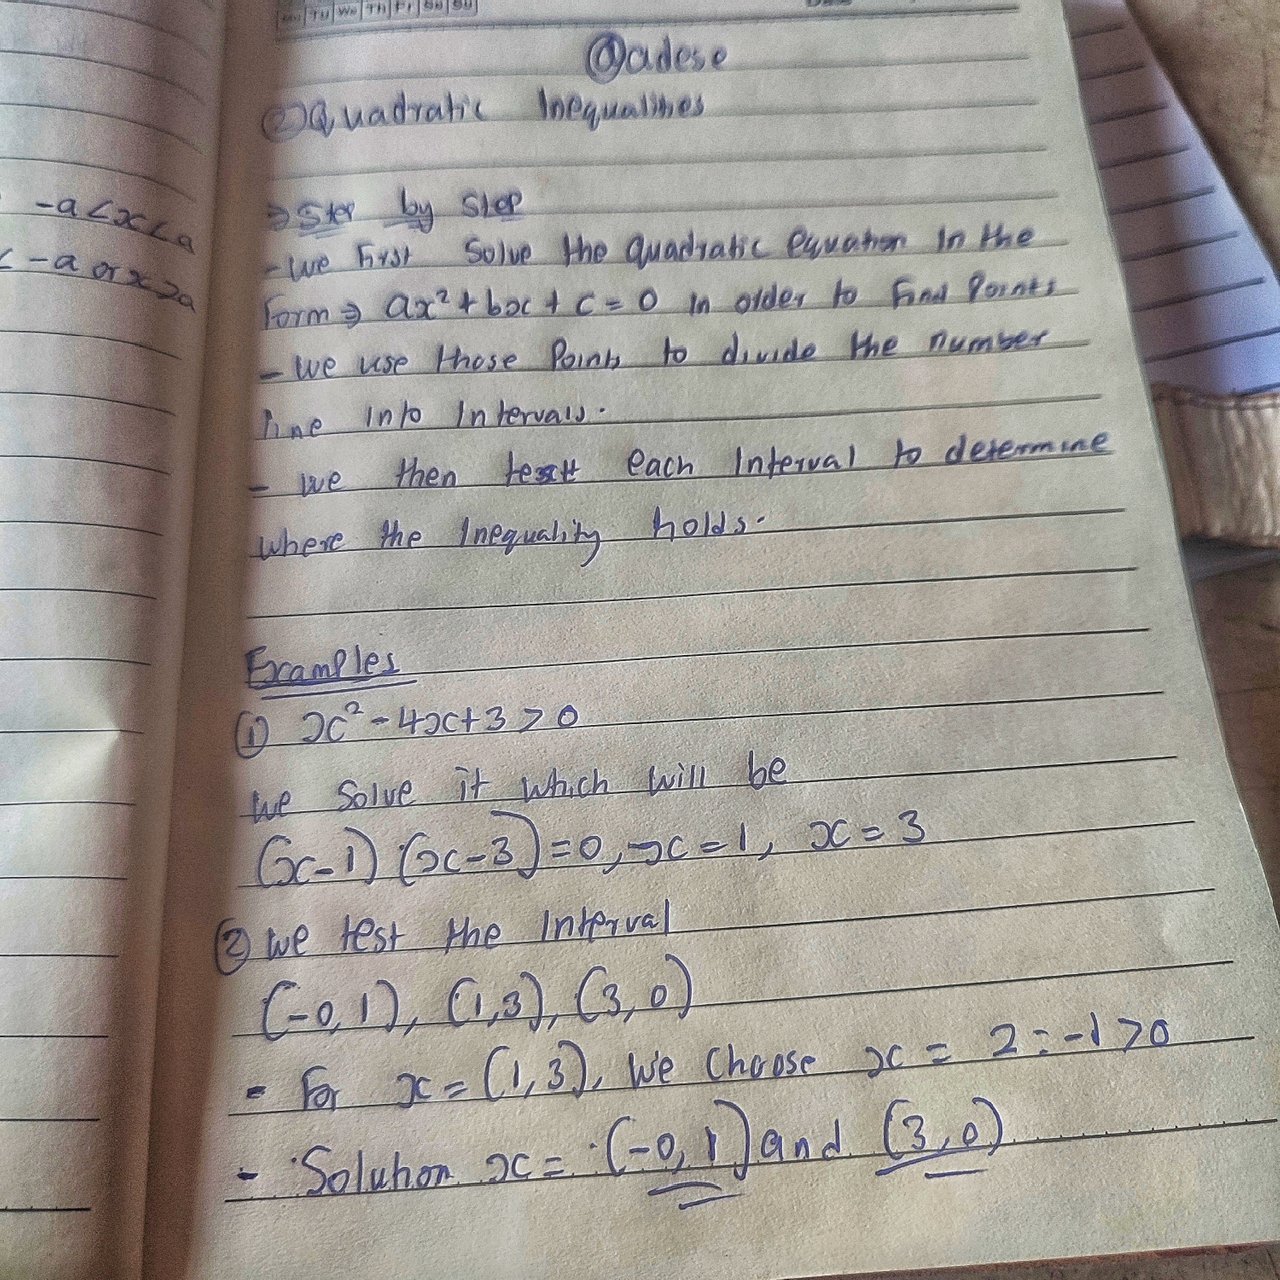 -a<x<a
< -a or x>a
Mo Tu We Th Fr Sa Su
@adese
② Quadratic Inequalities
⇒ Step by Step
- We First Solve the quadratic equation in the
Form ⇒ ax² + bx + c = 0 in order to find Points
- We use those Points to divide the number
line into Intervals.
- We then test each Interval to determine
where the Inequality holds.
Examples
① x² - 4x + 3 > 0
We Solve it which will be
(x-1) (x-3) = 0, x = 1, x = 3
② We test the Interval
(-0, 1), (1,3), (3, 0)
- For x = (1,3), We Choose x = 2 = -1 > 0
- Solution x = (-0, 1) and (3, 0)